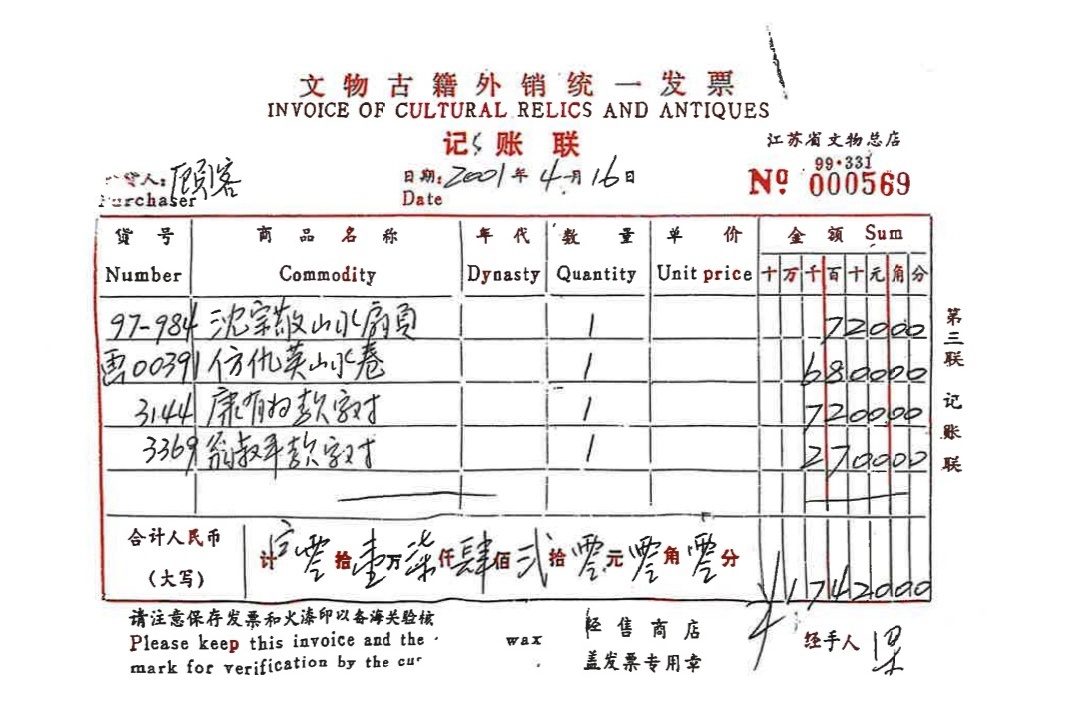 文物古籍外销统一发票
INVOICE OF CULTURAL RELICS AND ANTIQUES
记账联
江苏省文物总店
货人: 顾客
Purchaser
日期: 2001年4月16日
Date
99·331
Nº 000569
货号 商品名称 年代 数量 单价 金额 Sum
Number Commodity Dynasty Quantity Unit price 十 万 千 百 十 元 角 分
97-984 沈宗敬山水扇頁 1 72000
00391 仿仇英山水卷 1 680000
3144 康有为款字对 1 720000
3369 翁叔平款字对 1 270000
第三联 记账联
合计人民币
(大写)
计 零拾壹万柒仟肆佰弍拾零元零角零分 ¥1742000
请注意保存发票和火漆印以备海关验核
Please keep this invoice and the wax
mark for verification by the cu
经售商店
盖发票专用章
经手人 梁